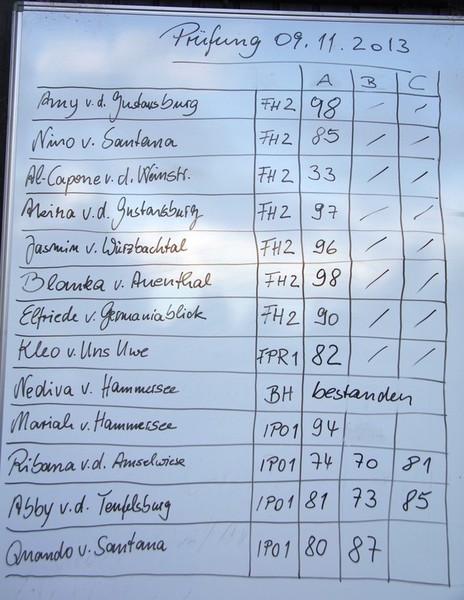 Prüfung 09.11.2013
A B C
Amy v.d. Gustavsburg FH2 98 / /
Nino v. Santana FH2 85 / /
Al-Capone v. d. Weinstr. FH2 33 / /
Akina v.d. Gustavsburg FH2 97 / /
Jasmin v. Würzbachtal FH2 96 / /
Blanka v. Auenthal FH2 98 / /
Elfriede v. Germaniablick FH2 90 / /
Kleo v. Uns Uwe FPR1 82 / /
Nediva v. Hammersee BH bestanden
Mariah v. Hammersee IPO1 94
Ribana v.d. Amselwiese IPO1 74 70 81
Abby v.d. Teufelsburg IPO1 81 73 85
Quando v. Santana IPO1 80 87